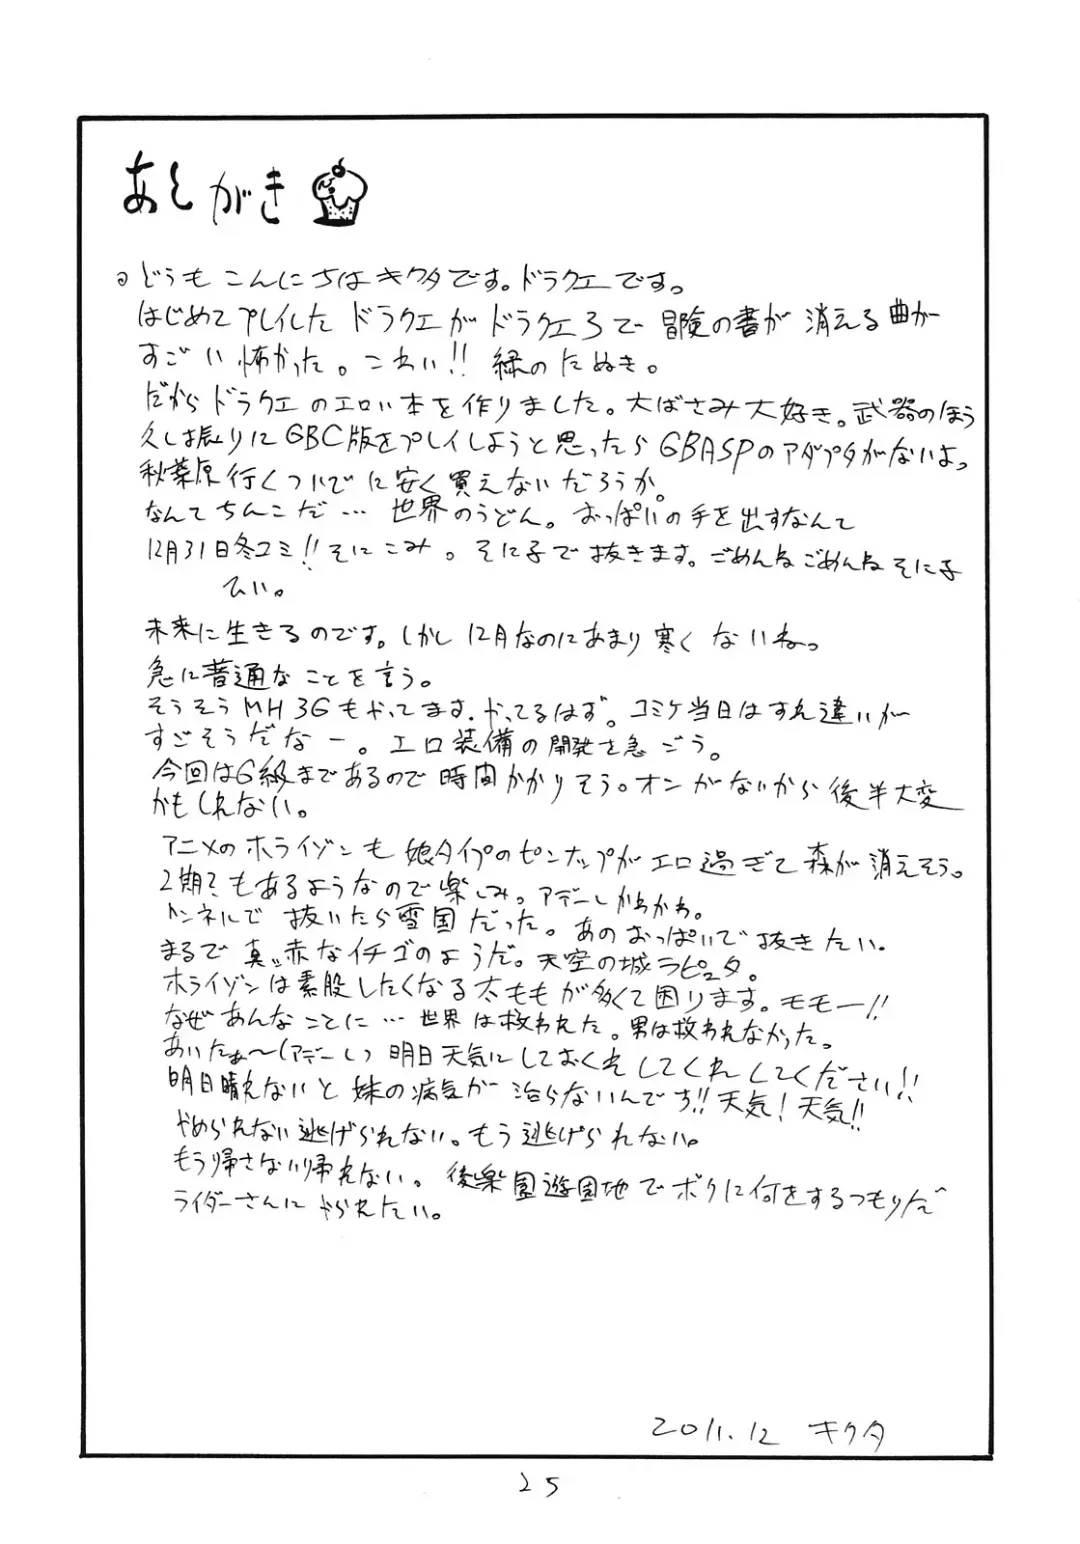 あとがき
どうもこんにちはキクタです。ドラクエです。
はじめてプレイしたドラクエがドラクエ3で冒険の書が消える曲が
すごい怖かった。こわい!!緑のたぬき。
だからドラクエのエロい本を作りました。大ばさみ大好き。武器のほう
久し振りにGBC版をプレイしようと思ったらGBASPのアダプタがないよっ
秋葉原行くついでに安く買えないだろうか。
なんてちんこだ…世界のうどん。おっぱいの手を出すなんて
12月31日冬コミ!!そにこみ。そに子で抜きます。ごめんねごめんねそに子
ひい。
未来に生きるのです。しかし12月なのにあまり寒くないねっ
急に普通なことを言う。
そうそうMH3Gもやってます.やってるはず。コミケ当日はすれ違いが
すごそうだなー。エロ装備の開発を急ごう。
今回はG級まであるので時間かかりそう。オンがないから後半大変
かもしれない。
アニメのホライゾンも娘タイプのピンナップがエロ過ぎて森が消えそう。
2期?もあるようなので楽しみ。アデーレかわかわ。
トンネルで抜いたら雪国だった。あのおっぱいで抜きたい。
まるで真っ赤なイチゴのようだ。天空の城ラピュタ。
ホライゾンは素股したくなる太ももが多くて困ります。モモー!!
なぜあんなことに…世界は救われた。男は救われなかった。
あいたぁ〜(アデーレ)明日天気にしておくれしてくれしてください!!
明日晴れないと妹の病気が治らないんです!!天気!天気!!
やめられない逃げられない。もう逃げられない。
もう帰さない帰れない。後楽園遊園地でボクに何をするつもりだ
ライダーさんにやられたい。
2011.12 キクタ
25